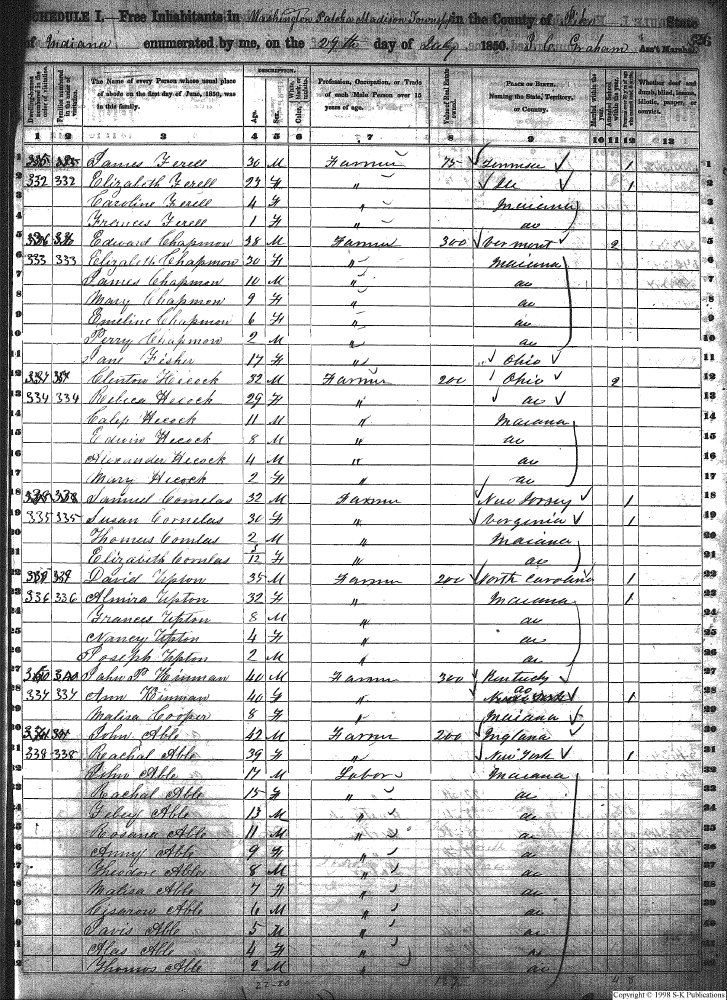 SCHEDULE I.—Free Inhabitants in Washington Patoka Madison Townships in the County of Pike State
of Indiana enumerated by me, on the 29th day of July 1850. J. C. Graham Ass't Marshal. 336
Dwelling-houses numbered in the order of visitation.
Families numbered in the order of visitation.
The Name of every Person whose usual place of abode on the first day of June, 1850, was in this family.
DESCRIPTION.
Age.
Sex.
Color, White, black, or mulatto.
Profession, Occupation, or Trade of each Male Person over 15 years of age.
Value of Real Estate owned.
PLACE OF BIRTH. Naming the State, Territory, or Country.
Married within the year.
Whether deaf and dumb, blind, insane, idiotic, pauper, or convict.
1 2 3 4 5 6 7 8 9 10 11 12 13
1 James Ferell 30 M Farmer 75 1 1
2 332 332 Elizabeth Ferell 23 F " do 1 2
3 Caroline Ferell 4 F " Indiana 3
4 Frances Ferell 1 F " do 4
5 Edward Chapmon 38 M Farmer 300 Vermont 2 5
6 333 333 Elizabeth Chapmon 30 F " Indiana 6
7 James Chapmon 10 M " do 7
8 Mary Chapmon 9 F " do 8
9 Emeline Chapmon 6 F " do 9
10 Perry Chapmon 2 M " do 10
11 Jane Fisher 17 F " Ohio 11
12 Clinton Hecock 32 M Farmer 200 Ohio 2 12
13 334 334 Rebeca Hecock 29 F " do 13
14 Calep Hecock 11 M " Indiana 14
15 Edwin Hecock 8 M " do 15
16 Alexander Hecock 4 M " do 16
17 Mary Hecock 2 F " do 17
18 Samuel Cornelas 32 M Farmer New Jersey 1 18
19 335 335 Susan Cornelas 30 F " Verginia 1 19
20 Thomas Cornelas 2 M " Indiana 20
21 Elizabeth Cornelas 5/12 F " do 21
22 David Upton 35 M Farmer 200 North Carolina 1 22
23 336 336 Almira Upton 32 F " Indiana 1 23
24 Frances Upton 8 M " do 24
25 Nancy Upton 4 F " do 25
26 Joseph Upton 2 M " do 26
27 John P Hinman 40 M Farmer 300 Kentucky 27
28 337 337 Ann Hinman 40 F " do 1 28
29 Malisa Cooper 8 F " Indiana 29
30 John Able 42 M Farmer 200 Ingland 30
31 338 338 Rachal Able 39 F " New York 1 31
32 John Able 17 M Labor Indiana 32
33 Rachal Able 15 F " do 33
34 Able 13 M " do 34
35 Rosana Able 11 M " do 35
36 Anny Able 9 F " do 36
37 Theodore Able 8 M " do 37
38 Malisa Able 7 F " do 38
39 Able 6 M " do 39
40 Able 5 M " do 40
41 Able 4 F " do 41
42 Thomas Able 2 M " do 42
Copyright © 1998 S-K Publications